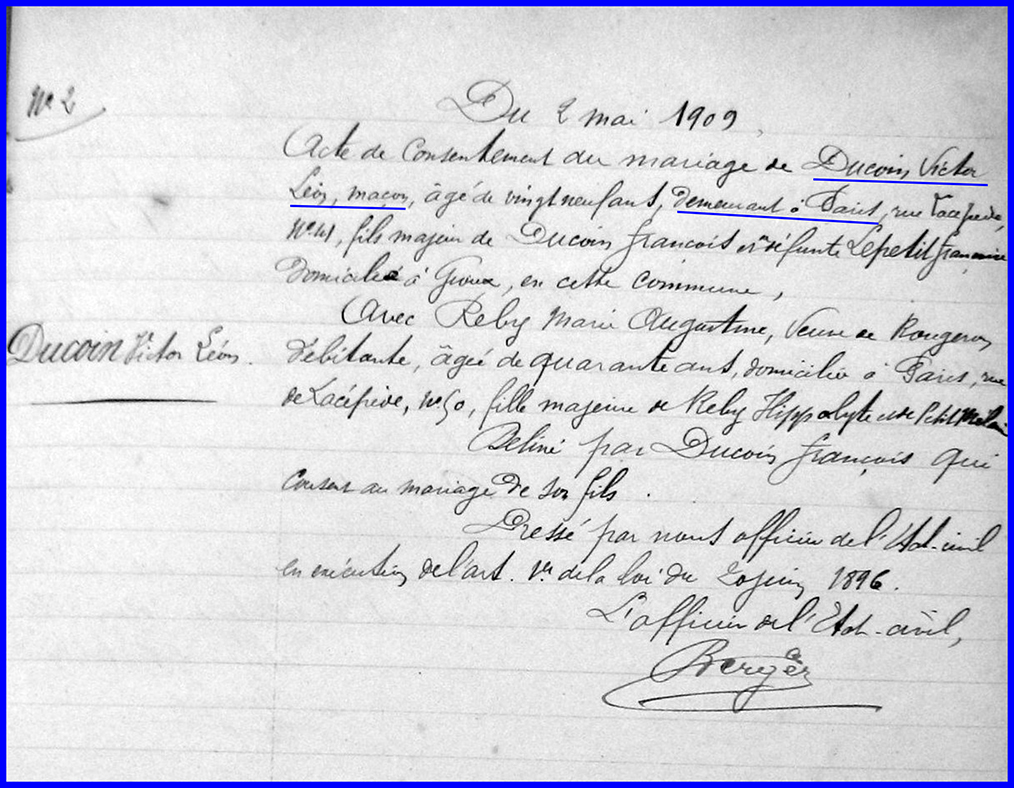 N° 2
Du 2 mai 1909.
Acte de Consentement du mariage de Ducoin Victor
Léon, maçon, âgé de vingt neuf ans, demeurant à Paris, rue Lacépède,
N° 41, fils majeur de Ducoin François et de défunte Lepetit Françoise
domicilié à Gioux, en cette commune,
Avec Reby Marie Augustine, Veuve de Rougeron
Ducoin Victor Léon.
débitante, âgée de quarante ans, domiciliée à Paris, rue
de Lacépède, N° 50, fille majeure de Reby Hippolyte et de Petit
Déliné par Ducoin François qui
consent au mariage de son fils.
Dressé par nous officier de l'Etat-civil
en exécution de l'art. 1er de la loi du 20 juin 1896.
L'officier de l'Etat-civil,
Berger